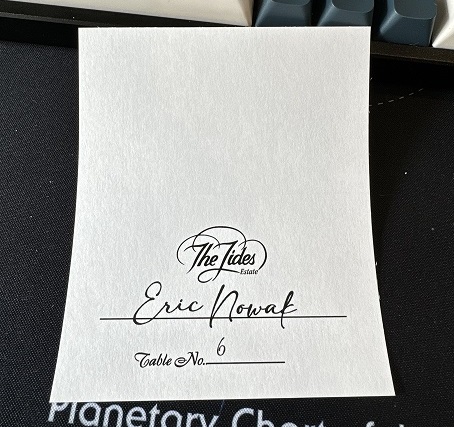 The Tides
Estate
Eric Nowak
Table No. 6
Planetary Chart of